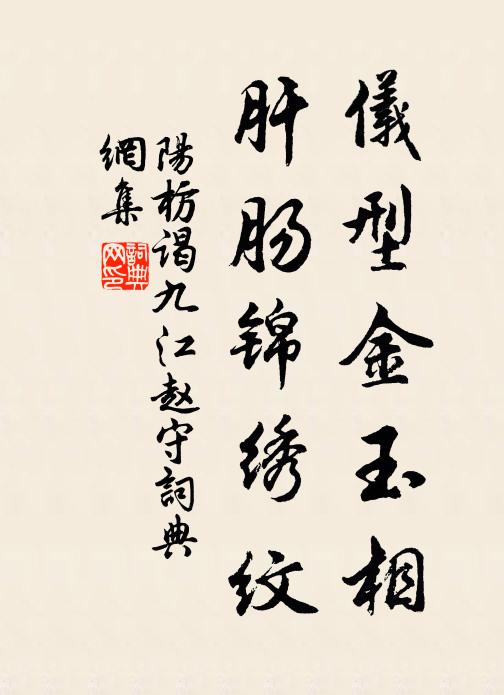 儀型金玉相
肝肠锦绣纹
陽枋谒九江赵守詞典
網集
詞典
网印